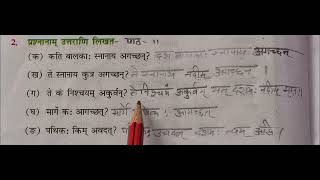 2. प्रश्नानाम् उत्तराणि लिखत- पाठ- 11
(क) कति बालकाः स्नानाय अगच्छन्? दश बालकाः स्नानाय अगच्छन्
(ख) ते स्नानाय कुत्र अगच्छन्? ते स्नानाय नदीम् अगच्छन्
(ग) ते कं निश्चयम् अकुर्वन्? ते निश्चयं अकुर्वन् यत् दशमः नदीम्
(घ) मार्गे कः आगच्छत्? मार्गे आगच्छत्।
(ङ) पथिकः किम् अवदत्? दशमः त्वम् असि।